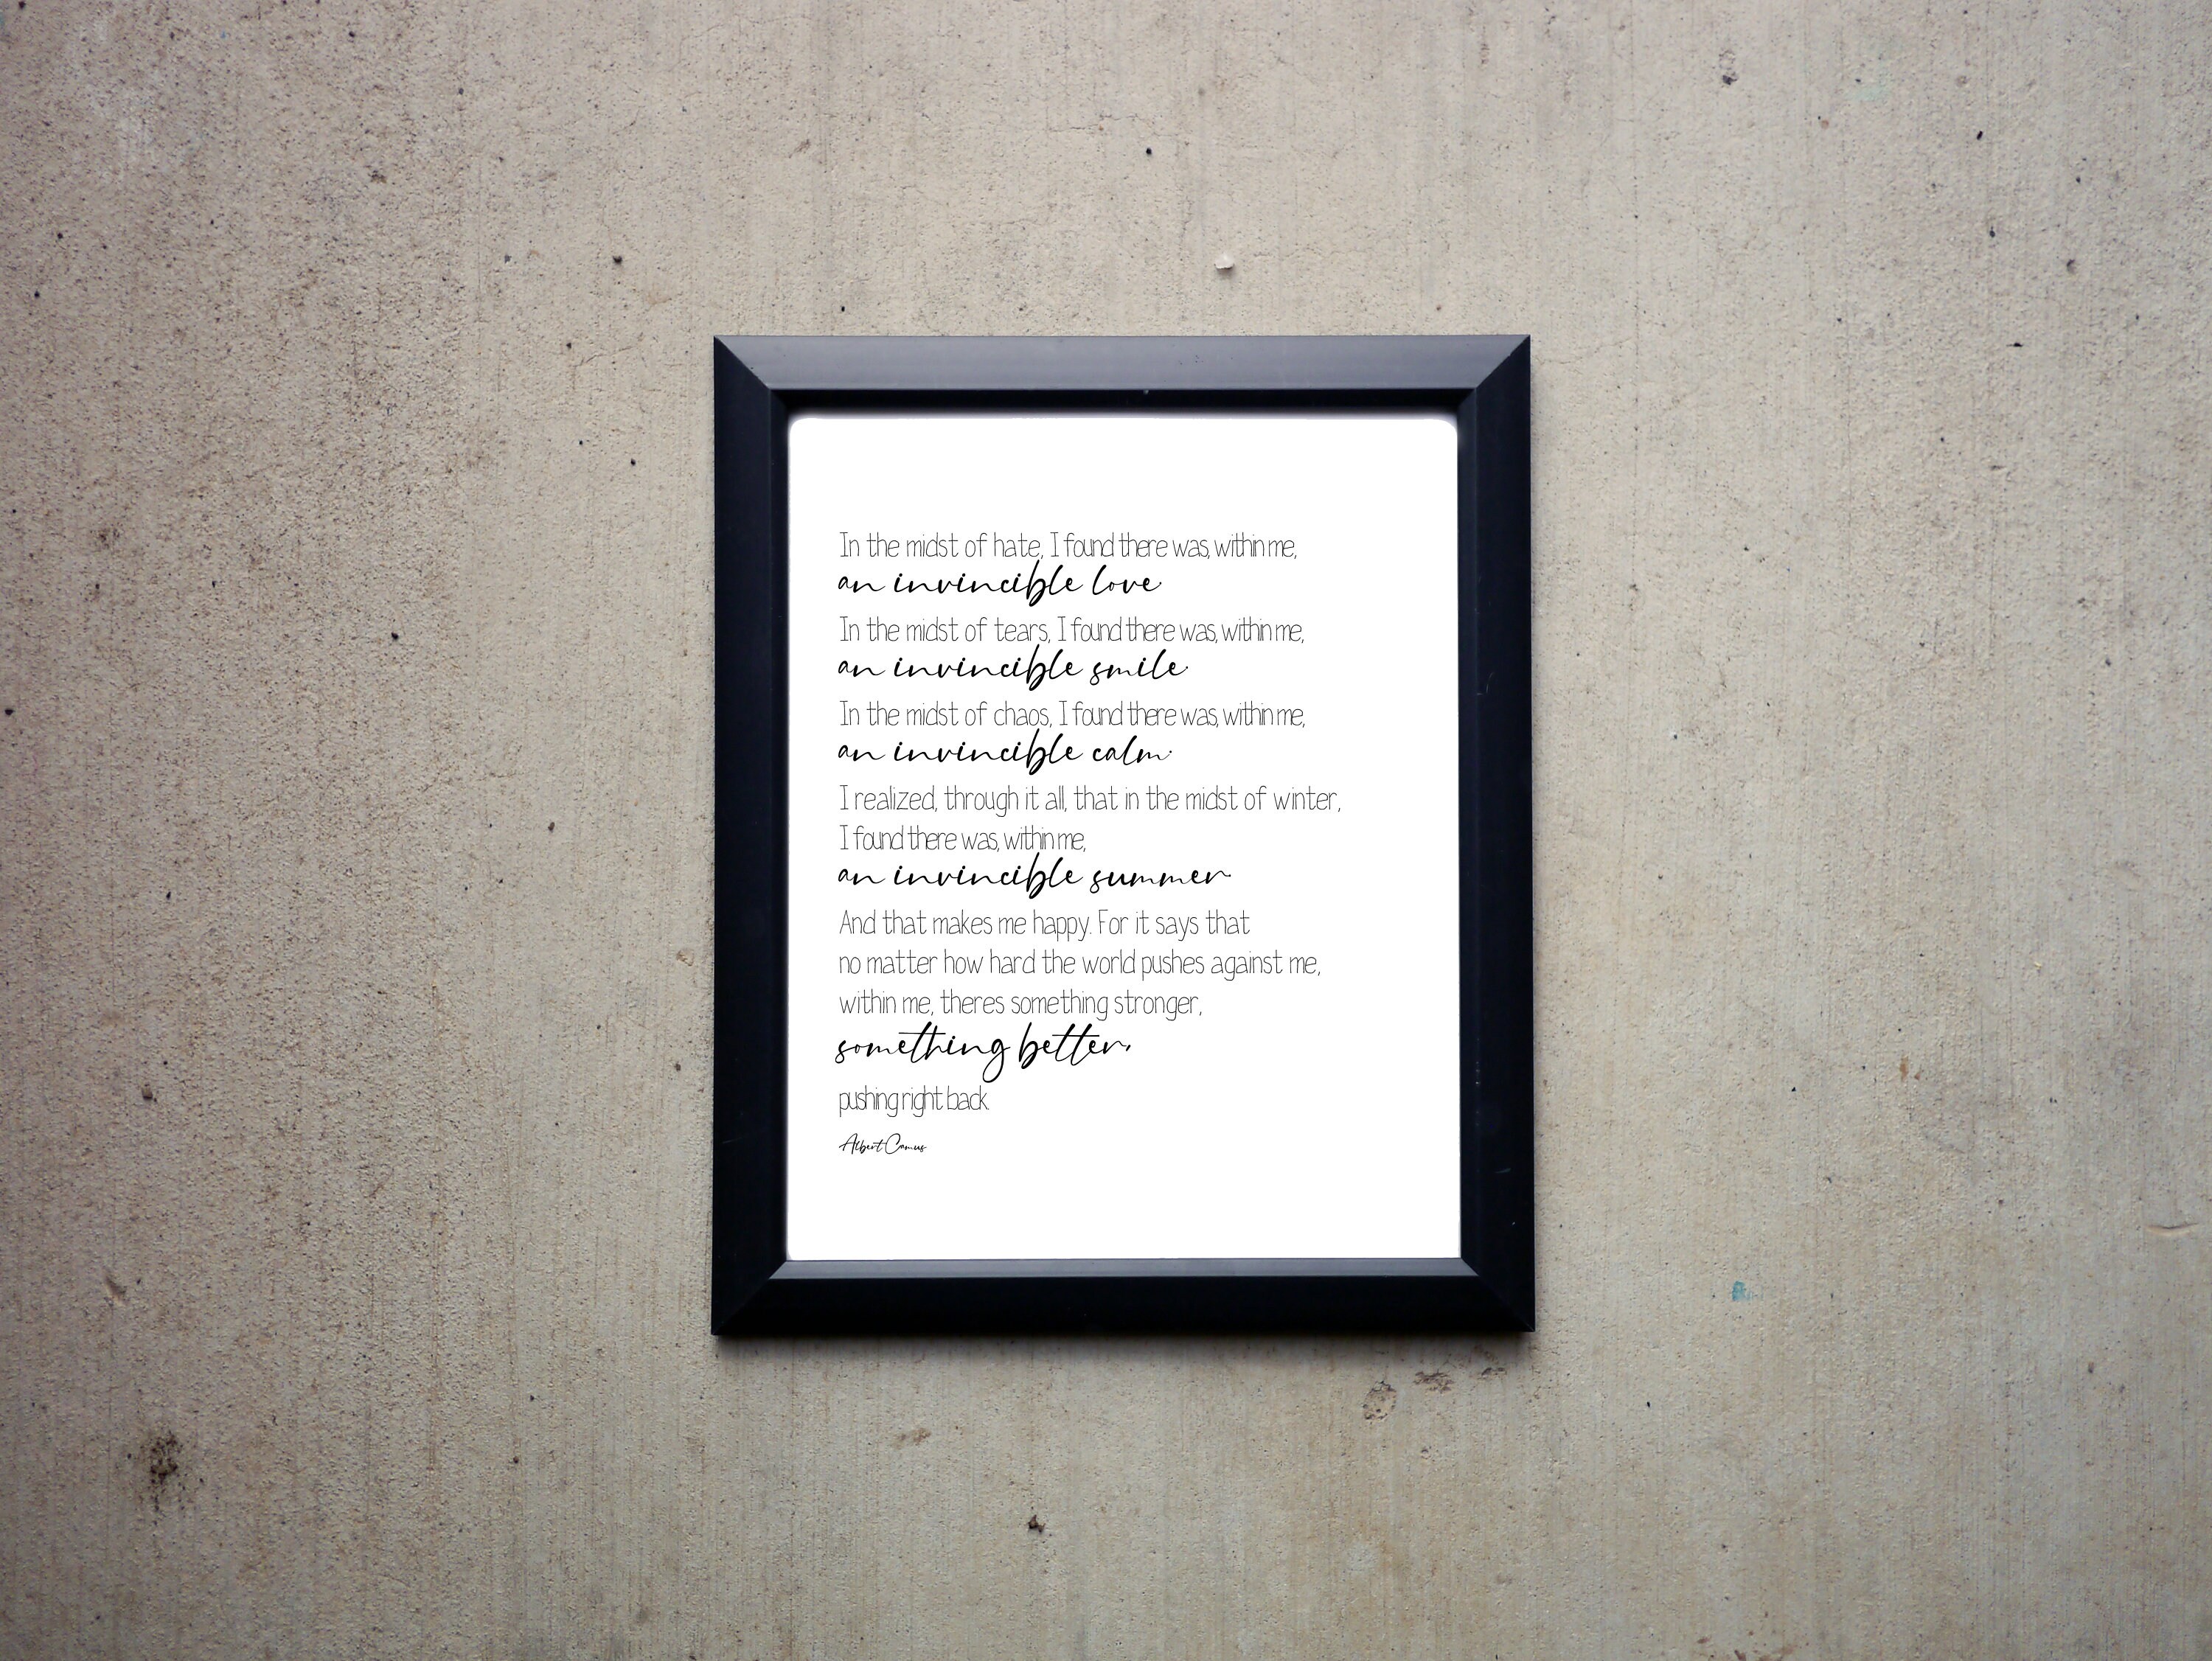 In the midst of hate, I found there was, within me,
an invincible love.
In the midst of tears, I found there was, within me,
an invincible smile.
In the midst of chaos, I found there was, within me,
an invincible calm.
I realized, through it all, that in the midst of winter,
I found there was, within me,
an invincible summer.
And that makes me happy. For it says that
no matter how hard the world pushes against me,
within me, theres something stronger,
something better,
pushing right back.
Albert Camus